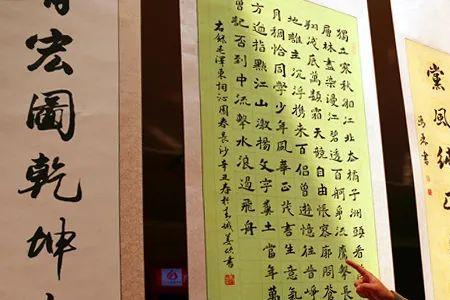 黨風純
獨立寒秋湘江北去橘子洲頭看
層林盡染漫江碧透百舸爭流鷹擊長
翔淺底萬類霜天競自由悵寥廓問蒼
地誰主沉浮攜來百侶曾遊憶往昔崢
月稠恰同學少年風華正茂書生意氣
方遒指點江山激揚文字糞土當年萬
曾記否到中流擊水浪遏飛舟
右錄毛澤東詞沁園春長沙辛丑春於青城姜欣書
宏圖乾坤